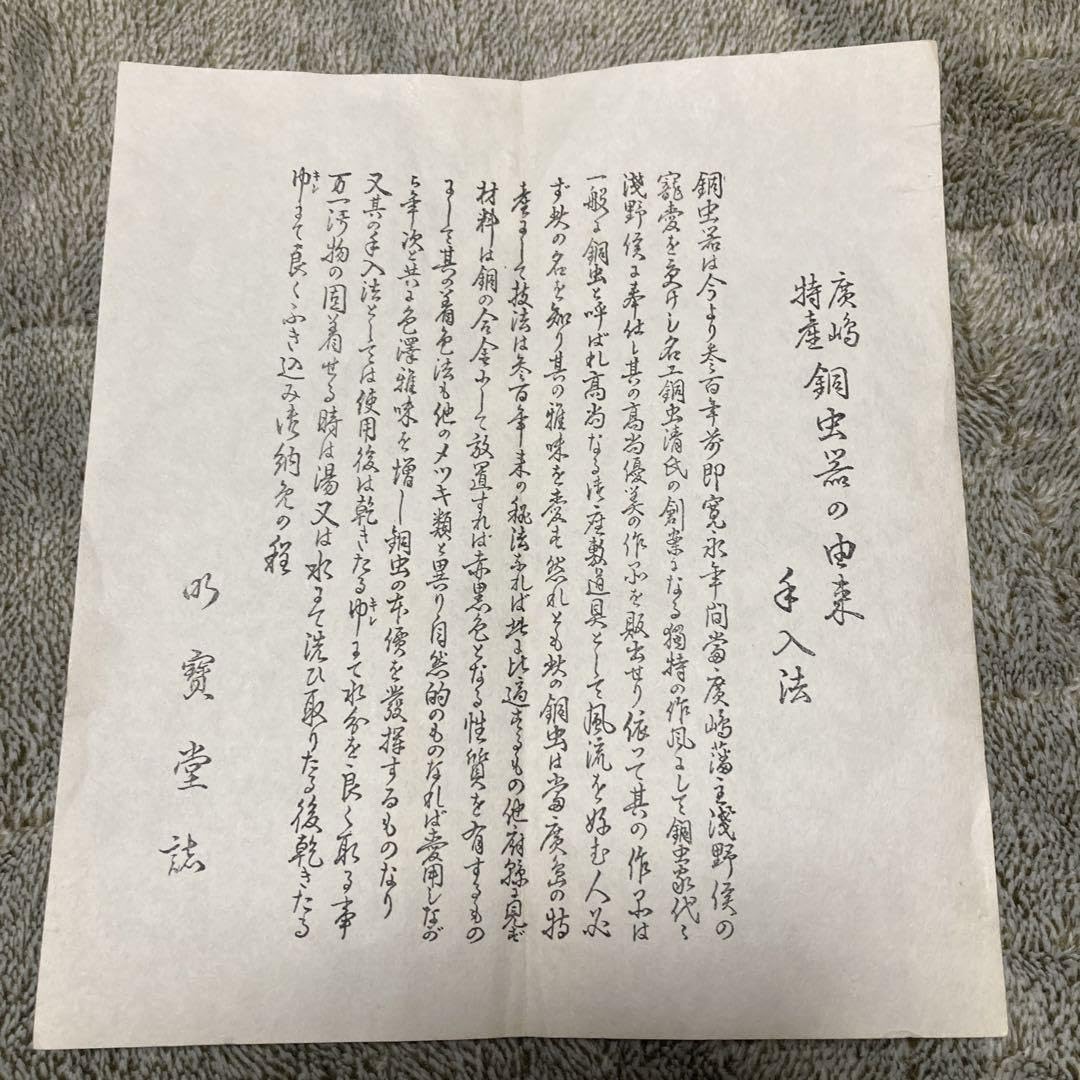 廣嶋
特産
銅虫器の由来
手入法
銅虫器は今より叁百年前即寛永年間當廣嶋藩主淺野侯の
寵愛を受けし名工銅虫清氏の創案になる獨特の作風にして銅虫家代々
淺野侯に奉仕し其の高尚優美の作品を販出せり依って其の作品は
一般に銅虫と呼ばれ高尚なる御座敷道具として風流を好む人必
ず此の名を知り其の雅味を愛す然れとも此の銅虫は當廣島の特
産にして技法は叁百年来の秘法なれば此に比適するもの他府縣に見ず
材料は銅の合金にして放置すれば赤黒色となる性質を有するもの
にして其の着色法も他のメツキ類と異り自然的のものなれば愛用しなが
ら年次と共に色澤雅味を増し銅虫の本價を發揮するものなり
又其の手入法としては使用後は乾きたる巾にて水分を良く取る事
キレ
万一汚物の固着せる時は湯又は水にて洗ひ取りたる後乾きたる
巾にて良くふき込み御納免の程
キレ
明寶堂誌